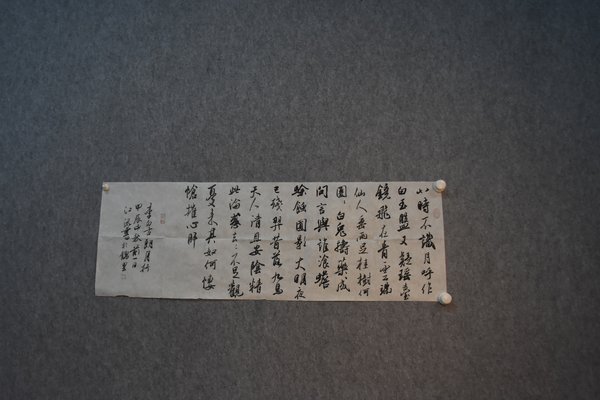 小时不识月呼作
白玉盘又疑瑶台
镜飛在青雲端
仙人垂兩足桂樹何
團〻白兔擣藥成
問言與誰餐蟾
蜍蝕圓影大明夜
已殘羿昔落九烏
天人清且安陰精
此淪惑去〻不足觀
憂来其如何悽
愴摧心肝
李白古朗月行
甲辰
江